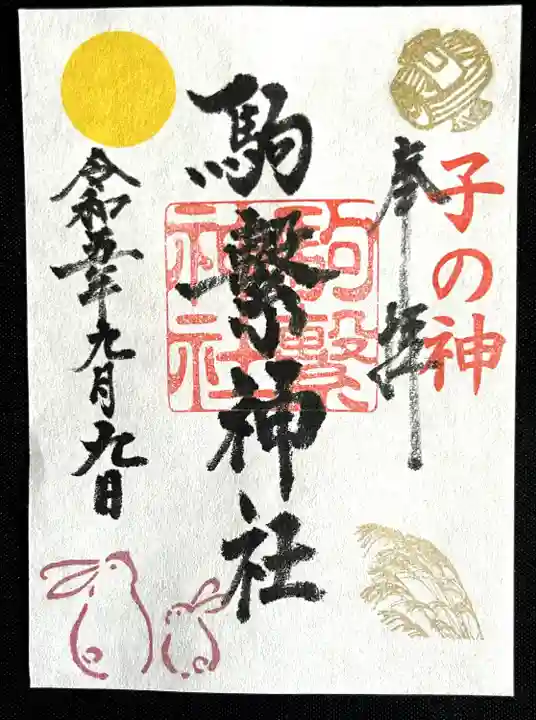 子の神
奉拝
駒繋神社
駒繋
神社
令和五年九月九日